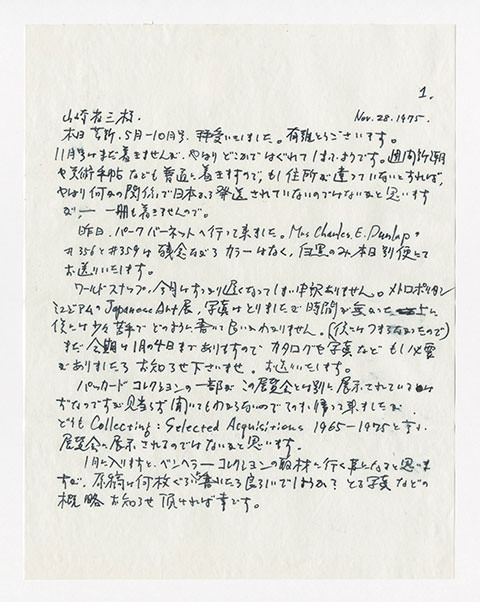 1.
山崎省三様 Nov. 28. 1975.
本日芸新、5月–10月号、拝受いたしました。有難とうございます。
11月号はまだ着きませんが、やはりどこかではぐれてしまったようです。週間新潮
や美術手帖なども普通に着きますので、もし住所が違っていないとすれば、
やはり何らかの関係で日本から発送されていないのではないかと思います
が、一 一冊も着きませんので。
昨日、パークバーネットへ行って来ました。Mrs Charles. E. Dunlap の
#356と#359は残念ながら カラーはなく、白黒のみ本日別便にて
お送りいたします。
ワールドスナップ、今月はすっかり遅くなってしまい申訳ありません。メトロポリタン
ミュジアムの Japanese Art 展、写真はとりましたが時間が無かった上に
僕には少々苦手でどのように書いて良いかわかりません。(僕にはつまらなかったので)
まだ会期は1月4日までありますので カタログや写真など もし必要
がありましたら お知らせ下さいませ。お送いいたします。
パッカード コレクションの一部が この展覧会とは別に展示されている
はずなのですが見当らず 聞いてもわからないのでそのまま帰って来ましたが、
どうも Collecting: Selected Acquisitions 1965–1975と言う
展覧会に展示されてるのではないかと思います。
1月に入りますと、ベンヘラーコレクションの取材に行く事になると思いま
すが、原稿は何枚ぐらい書いたら良ろしいでしょうか? とる写真などの
概略 お知らせ頂ければ幸です。